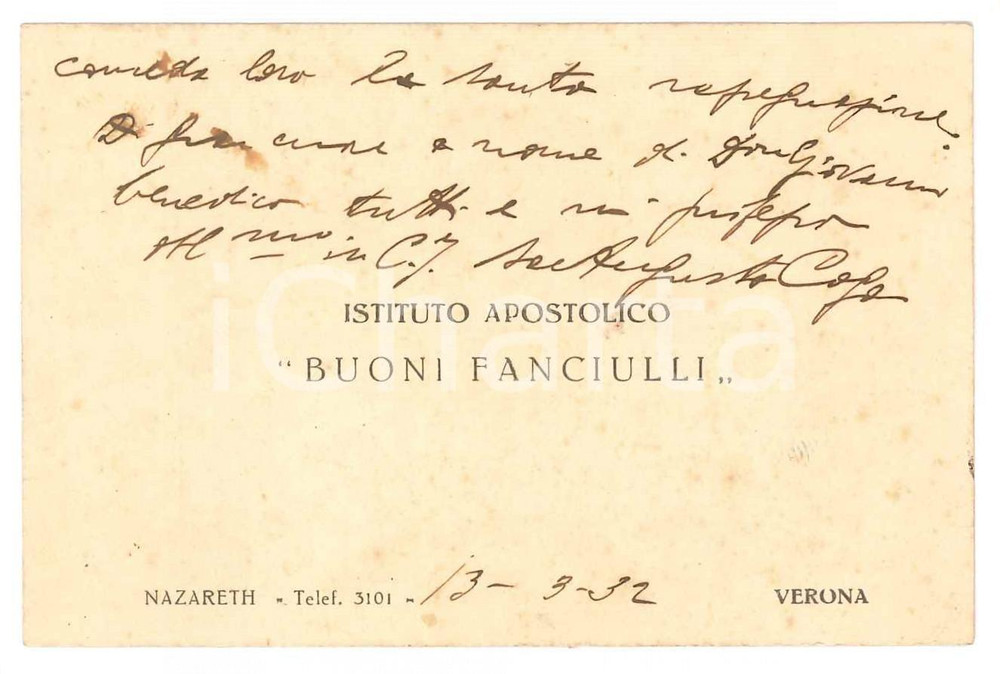 conceda loro la santa rassegnazione.
Di gran cuore a nome di Don Giovanni
benedico tutti e mi professo
in C. J. Sac Augusto Cogo
ISTITUTO APOSTOLICO
iCharta
“ BUONI FANCIULLI „
NAZARETH - Telef. 3101 - 13-3-32 VERONA